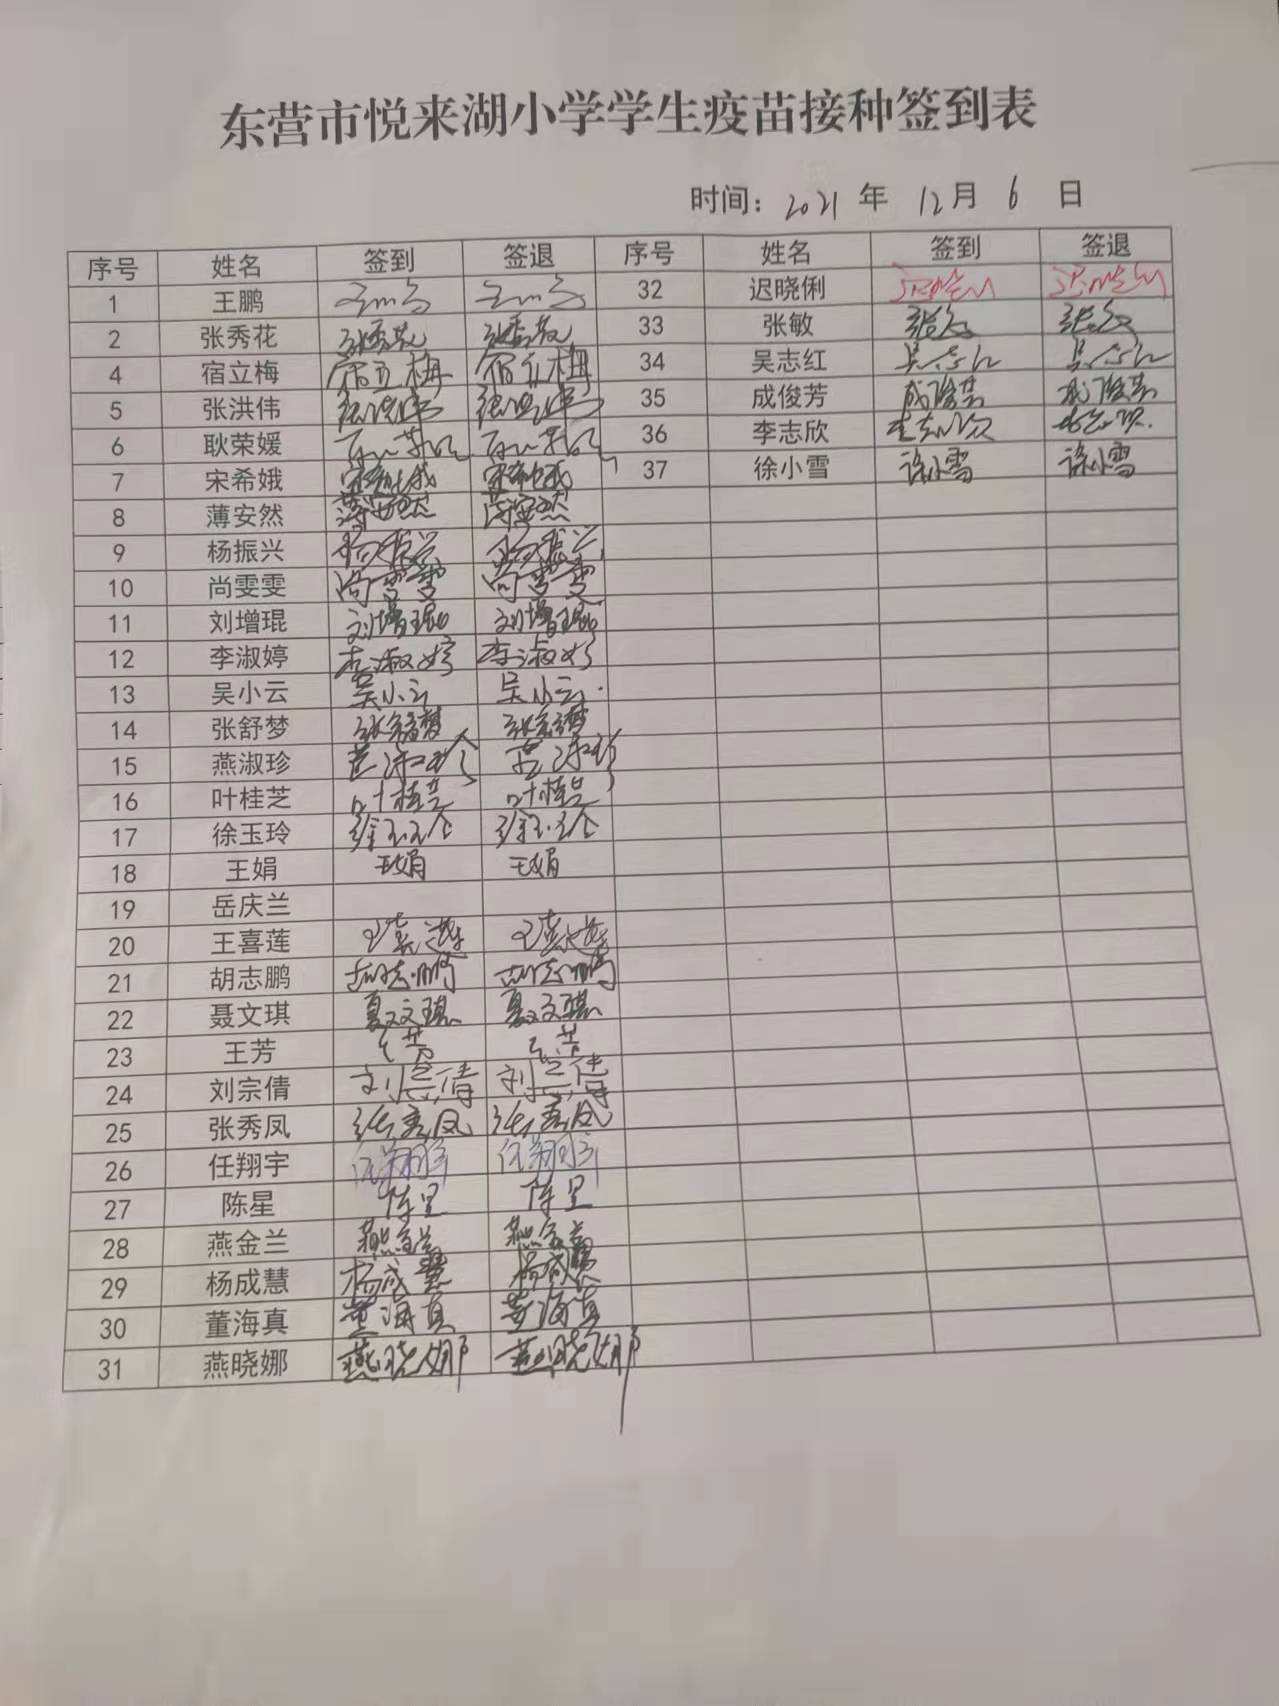 东营市悦来湖小学学生疫苗接种签到表
时间：2021 年 12 月 6 日
序号 姓名 签到 签退 序号 姓名 签到 签退
1 王鹏 32 迟晓俐
2 张秀花 33 张敏
4 宿立梅 宿立梅 宿立梅 34 吴志红
5 张洪伟 张洪伟 张洪伟 35 成俊芳 成俊芳 成俊芳
6 耿荣媛 36 李志欣
7 宋希娥 宋希娥 宋希娥 37 徐小雪 徐小雪 徐小雪
8 薄安然 薄安然 薄安然
9 杨振兴 杨振兴 杨振兴
10 尚雯雯 尚雯雯 尚雯雯
11 刘增琨 刘增琨 刘增琨
12 李淑婷 李淑婷 李淑婷
13 吴小云 吴小云 吴小云
14 张舒梦 张舒梦 张舒梦
15 燕淑珍
16 叶桂芝 叶桂芝 叶桂芝
17 徐玉玲 徐玉玲 徐玉玲
18 王娟 王娟 王娟
19 岳庆兰
20 王喜莲 王喜莲 王喜莲
21 胡志鹏 胡志鹏 胡志鹏
22 聂文琪
23 王芳 王芳 王芳
24 刘宗倩 刘宗倩 刘宗倩
25 张秀凤 张秀凤 张秀凤
26 任翔宇 任翔宇 任翔宇
27 陈星 陈星 陈星
28 燕金兰 燕金兰 燕金兰
29 杨成慧 杨成慧 杨成慧
30 董海真 董海真 董海真
31 燕晓娜 燕晓娜 燕晓娜